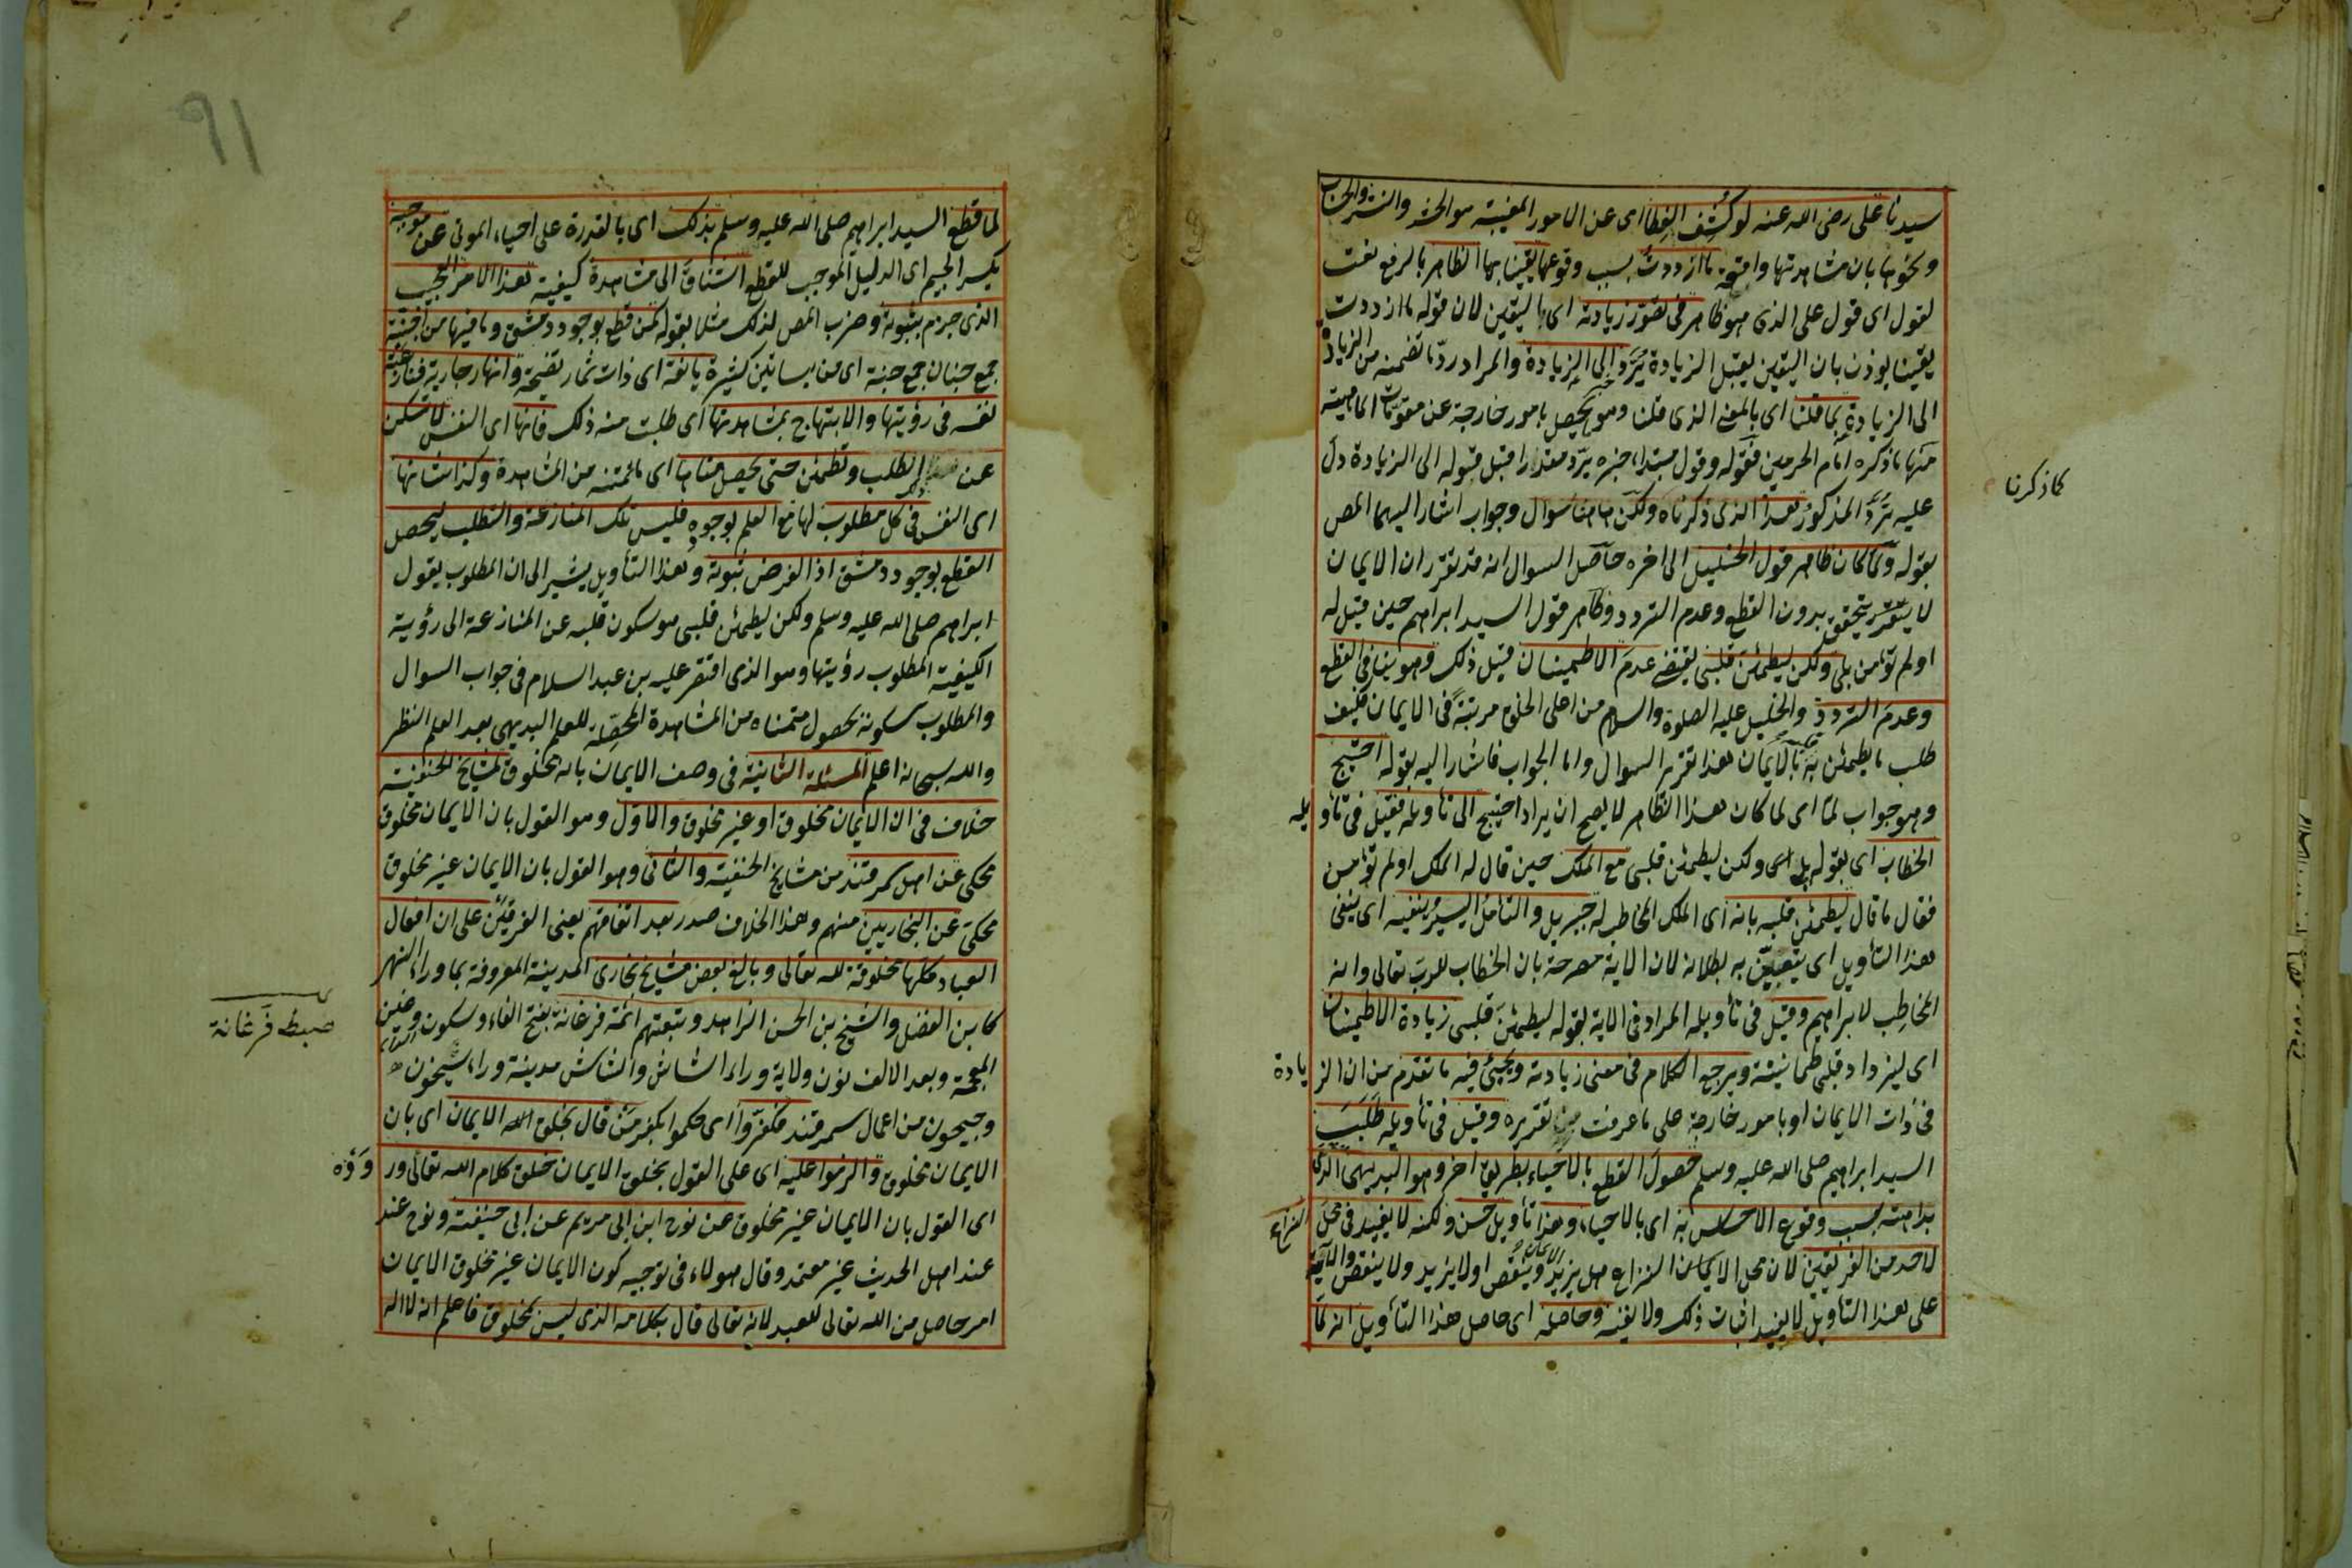 سيدنا على رضى الله عنه لو كُشِف الغِطا اى عن الامور المغيبة من الحشر والنشر والحساب
ونحوها بان شاهدتها واقعة ما ازددت بسبب وقوعها يقينا بها الظاهر بالرفع نعت
لقول اى قول على الذى هو ظاهر فى تصور زيادته اى اليقين لان قوله ما ازددت
يقينا يوذن بان اليقين يقبل الزيادة يُرَدّ الى الزيادة والمراد ردّ ما تضمنه من الزيادة
الى الزيادة بما قلنا اى بالمعنى الذى قلنا وهو يحصل بامور خارجة عن مقومات الماهية
منها ما ذكره امام الحرمين فقوله وقول مبتدا خبره يرد مقدرا قبل قوله الى الزيادة دل
كما ذكرنا
عليه يُرَدّ المذكور بعد الذى ذكرناه ولكن هاهنا سوال وجواب اشار اليهما المص
بقوله ولما كان ظاهر قول الخليل الى اخره حاصل السوال انه قد تقرر ان الايمان
لا يتحقق بدون القطع وعدم التردد وظاهر قول السيد ابراهيم حين قيل له
اولم تؤمن بلى ولكن ليطمئن قلبى يقتضى عدم الاطمينان قبل ذلك وهو ينافى القطع
وعدم التردد والخليل عليه الصلوة والسلام من اعلى الخلق مرتبة فى الايمان فكيف
طلب ما يطمئن به بالايمان هذا تقرير السوال واما الجواب فاشار اليه بقوله احتيج
وهو جواب لمّا اى لما كان هذا الظاهر لا يصح ان يراد احتيج الى تاويله فقيل فى تاويله
الخطاب اى بقوله بلى ولكن ليطمئن قلبى مع الملك حين قال له الملك اولم تؤمن
فقال ما قال ليطمئن قلبه بانه اى الملك المخاطب له جبريل والتامل اليسير ينفيه اى ينفى
هذا التأويل اى يتبيّن به بطلانه لان الاية مصرحة بان الخطاب للرب تعالى وانه
المخاطِب لابراهيم وقيل فى تأويله المراد فى الاية بقوله ليطمئن قلبى زيادة الاطمينان
اى ليزداد قلبى طمانينة ويرجع الكلام فى معنى زيادته ويجئ فيه ما تقدم من ان الزيادة
فى ذات الايمان او بامور خارجة على ما عرفت من تقريره وقيل فى تأويله طَلَبَ
السيد ابراهيم صلى الله عليه وسلم حصول القطع بالاحياء بطريق اخر وهو البديهى الذى
بداهته بسبب وقوع الاحساس به اى بالاحياء وهذا تأويل حسن ولكنه لا يفيد فى محل النزاع
لاحد من الفريقين لان محل النزاع هل يزيد الايمان وينقص او لا يزيد ولا ينقص والاية
على هذا التأويل لا تفيد اثبات ذلك ولا نفيه وحاصله اى حاصل هذا التأويل انه لمّا
٩١
لما قطع السيد ابراهيم صلى الله عليه وسلم بذلك اى بالقدرة على احياء الموتى عن موجبه
بكسر الجيم اى الدليل الموجب للقطع اشتاق الى مشاهدة كيفية هذا الامر العجيب
الذى جزم بثبوته وضرب المص لذلك مثلا بقوله كمن قطع بوجود دمشق وما فيها من اجنّة
جمع جنان جمع جنة اى من بساتين كثيرة يانعة اى ذات ثمار نضيجة وانهار جارية فنازعته
نفسه فى رؤيتها والابتهاج بمشاهدتها اى طلبت منه ذلك فانها اى النفس لا تسكن
عن الطلب وتطمئن حتى يحصل مناها اى ما تمنته من المشاهدة وكذا شانها
اى النفس فى كل مطلوب لها مع العلم بوجوده فليس تلك المنازعة والتطلب ليحصل
القطع بوجود دمشق اذ الفرض ثبوته وهذا التأويل يشير الى ان المطلوب بقول
ابراهيم صلى الله عليه وسلم ولكن ليطمئن قلبى هو سكون قلبه عن المنازعة الى رؤية
الكيفية المطلوب رؤيتها وهو الذى اقتصر عليه بن عبد السلام فى جواب السوال
والمطلوب سكونه بحصول متمناه من المشاهدة المحصِلة للعلم البديهى بعد العلم النظر
والله سبحانه اعلم المسئلة الثانية فى وصف الايمان بانه مخلوق لمشايخ الحنفية
خلاف فى ان الايمان مخلوق او غير مخلوق والاول وهو القول بان الايمان مخلوق
محكى عن اهل سمرقند من مشايخ الحنفية والثانى وهو القول بان الايمان غير مخلوق
محكى عن البخاريين منهم وهذا الخلاف صدر بعد اتفاقهم يعنى الفريقين على ان افعال
العباد كلها مخلوقة لله تعالى وبالغ بعض مشايخ بخارى المدينة المعروفة بما وراء النهر
كابن الفضل والشيخ بن الحسن الزاهد وتبعتهم ائمة فرغانة بفتح الفاء وسكون الراء وغين
ضبط فَرغانة
المعجمة وبعد الالف نون ولاية وراء الشاش والشاش مدينة وراء سيحون
وجيحون من اعمال سمرقند فكفرّوا اى حكموا بكفر من قال بخلق الايمان اى بان
الايمان مخلوق والزموا عليه اى على القول بخلق الايمان خلق كلام الله تعالى ورووه
اى القول بان الايمان غير مخلوق عن نوح ابن ابى مريم عن ابى حنيفة ونوح عند
عند اهل الحديث غير معتمد وقال هولاء فى توجيه كون الايمان غير مخلوق الايمان
امر حاصل من الله تعالى للعبد لانه تعالى قال بكلامه الذى ليس بمخلوق فاعلم انه لا اله